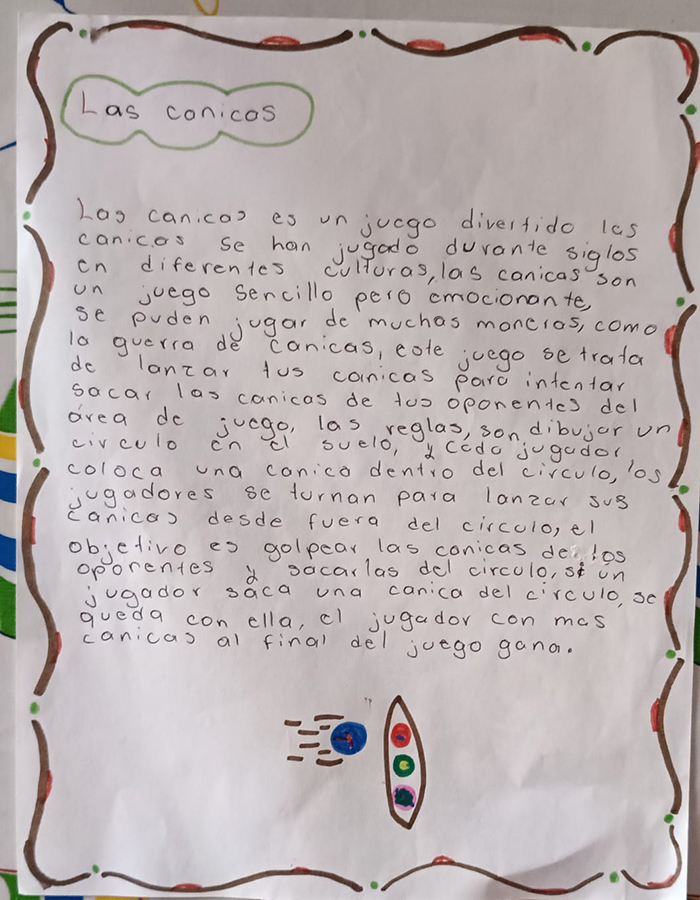 Las canicas
Las canicas es un juego divertido las
canicas se han jugado durante siglos
en diferentes culturas, las canicas son
un juego sencillo pero emocionante,
se puden jugar de muchas maneras, como
la guerra de canicas, este juego se trata
de lanzar tus canicas para intentar
sacar las canicas de tus oponentes del
área de juego, las reglas, son, dibujar un
circulo en el suelo, y cada jugador
coloca una canica dentro del circulo, los
jugadores se turnan para lanzar sus
canicas desde fuera del circulo, el
objetivo es golpear las canicas de los
oponentes y sacarlas del circulo, si un
jugador saca una canica del circulo, se
queda con ella, el jugador con mas
canicas al final del juego gana.